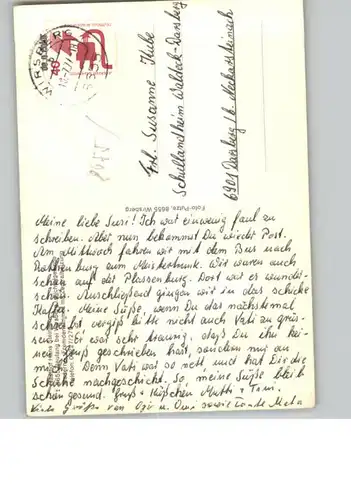 WIRSBERG
40
Frl. Susanne Kube
Schullandheim Waldeck-Darsberg
6901 Darsberg / b. Neckarsteinach
Foto-Putze, 8655 Wirsberg
Meine liebe Susi! Ich war einwenig faul zu
schreiben. Aber nun bekommst Du wieder Post.
Am Mittwoch fahren wir mit dem Bus nach
zum Musterbunk. Wir waren auch
schon auf der Plassenburg. Dort war es wunder-
schön. Anschließend gingen wir in das schicke
Kaffee. Meine Süße wenn Du das nächstemal
schreibst vergiß bitte nicht auch Vati zu grüs-
sen. Er war sehr traurig, daß Du ihn kei-
nen Gruß geschrieben hast, sondern nur an
mich. Denn Vati war so nett, und hat Dir die
Schuhe nachgeschickt. So, meine Süße bleib
schön gesund. Gruß + Küßchen Mutti + Toni.
Viele Grüße von Opi u. Omi sowie Tante Meta